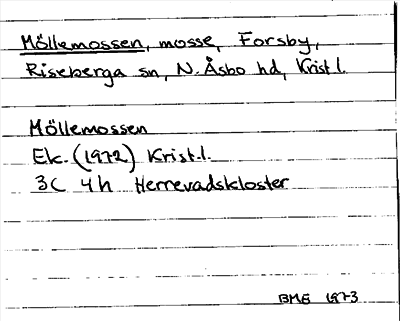 Möllemossen, mosse, Forsby,
Riseberga sn, N. Åsbo hd, Krist.l.
Möllemossen
Ek. (1972) Krist.l.
3C 4h Herrevadskloster
BME 1973